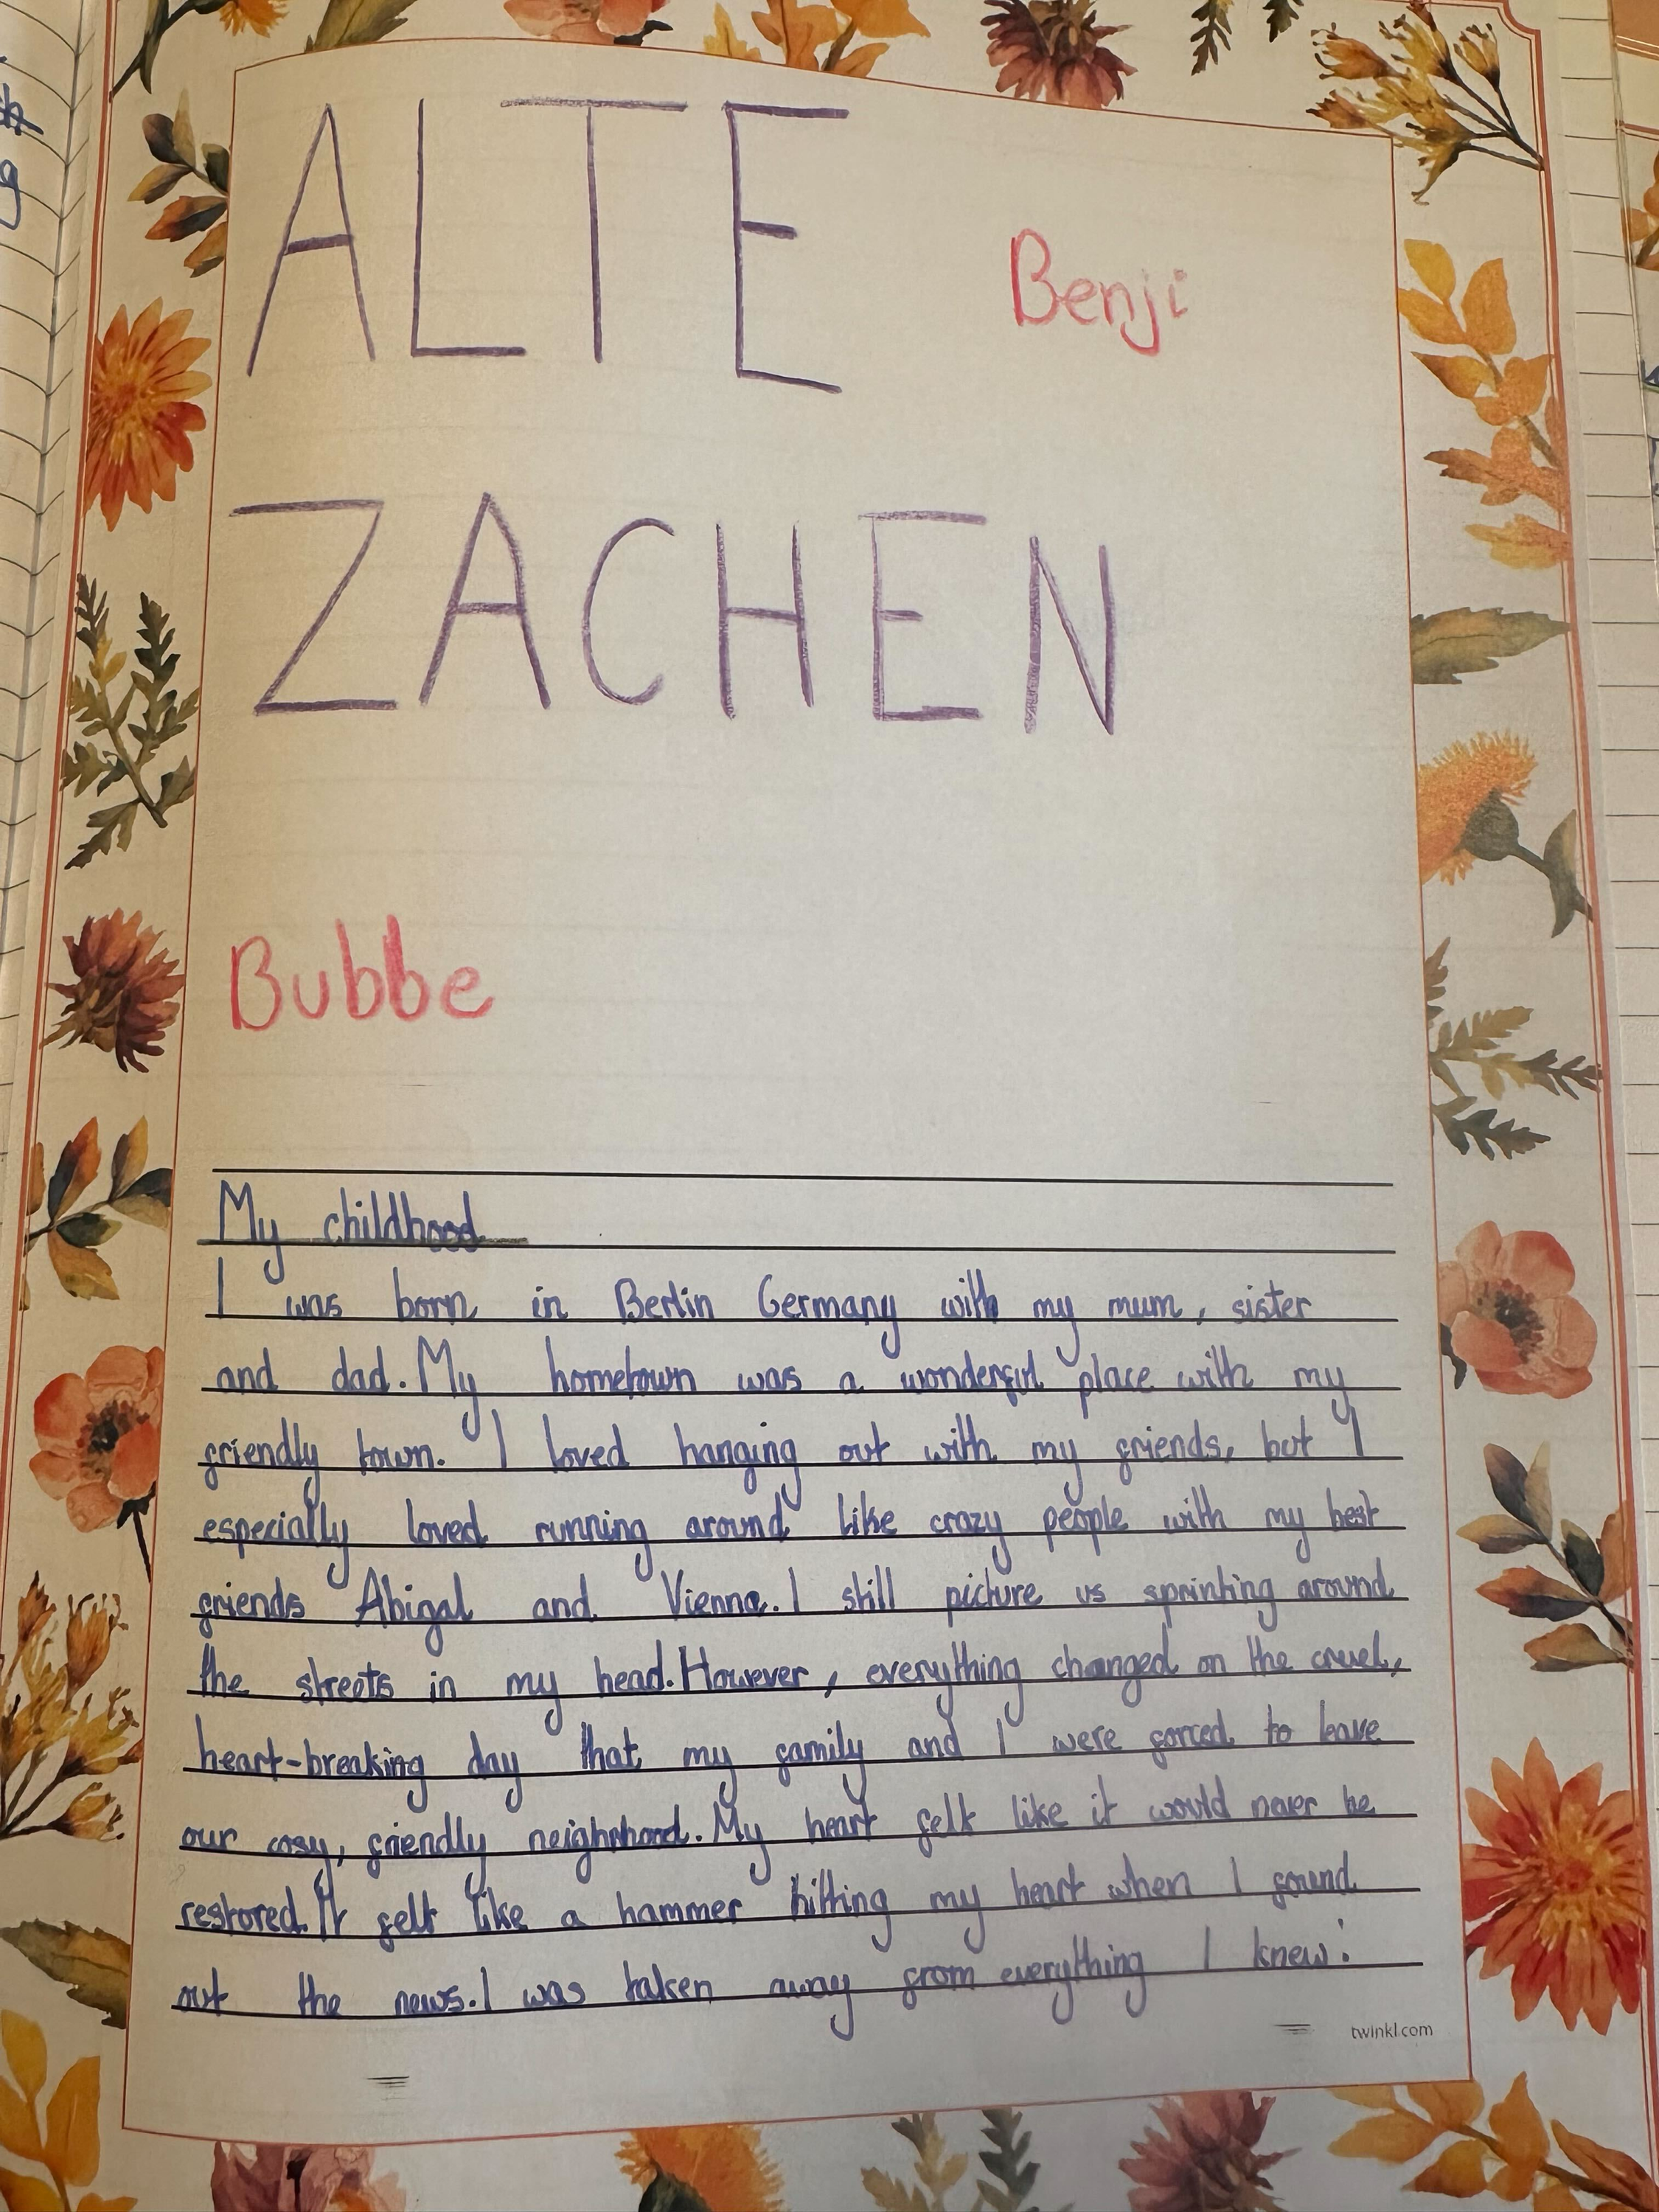 ALTE
Benji
ZACHEN
Bubbe
My childhood
I was born in Berlin Germany with my mum, sister
and dad. My hometown was a wonderful place with my
friendly town. I loved hanging out with my friends, but I
especially loved running around like crazy people with my best
friends Abigal and Vienna. I still picture us sprinting around
the streets in my head. However, everything changed on the cruel,
heart-breaking day that my family and I were forced to leave
our cosy, friendly neighbhood. My heart felt like it would never be
restored. It felt like a hammer hitting my heart when I found
out the news. I was taken away from everything I knew!
twinkl.com